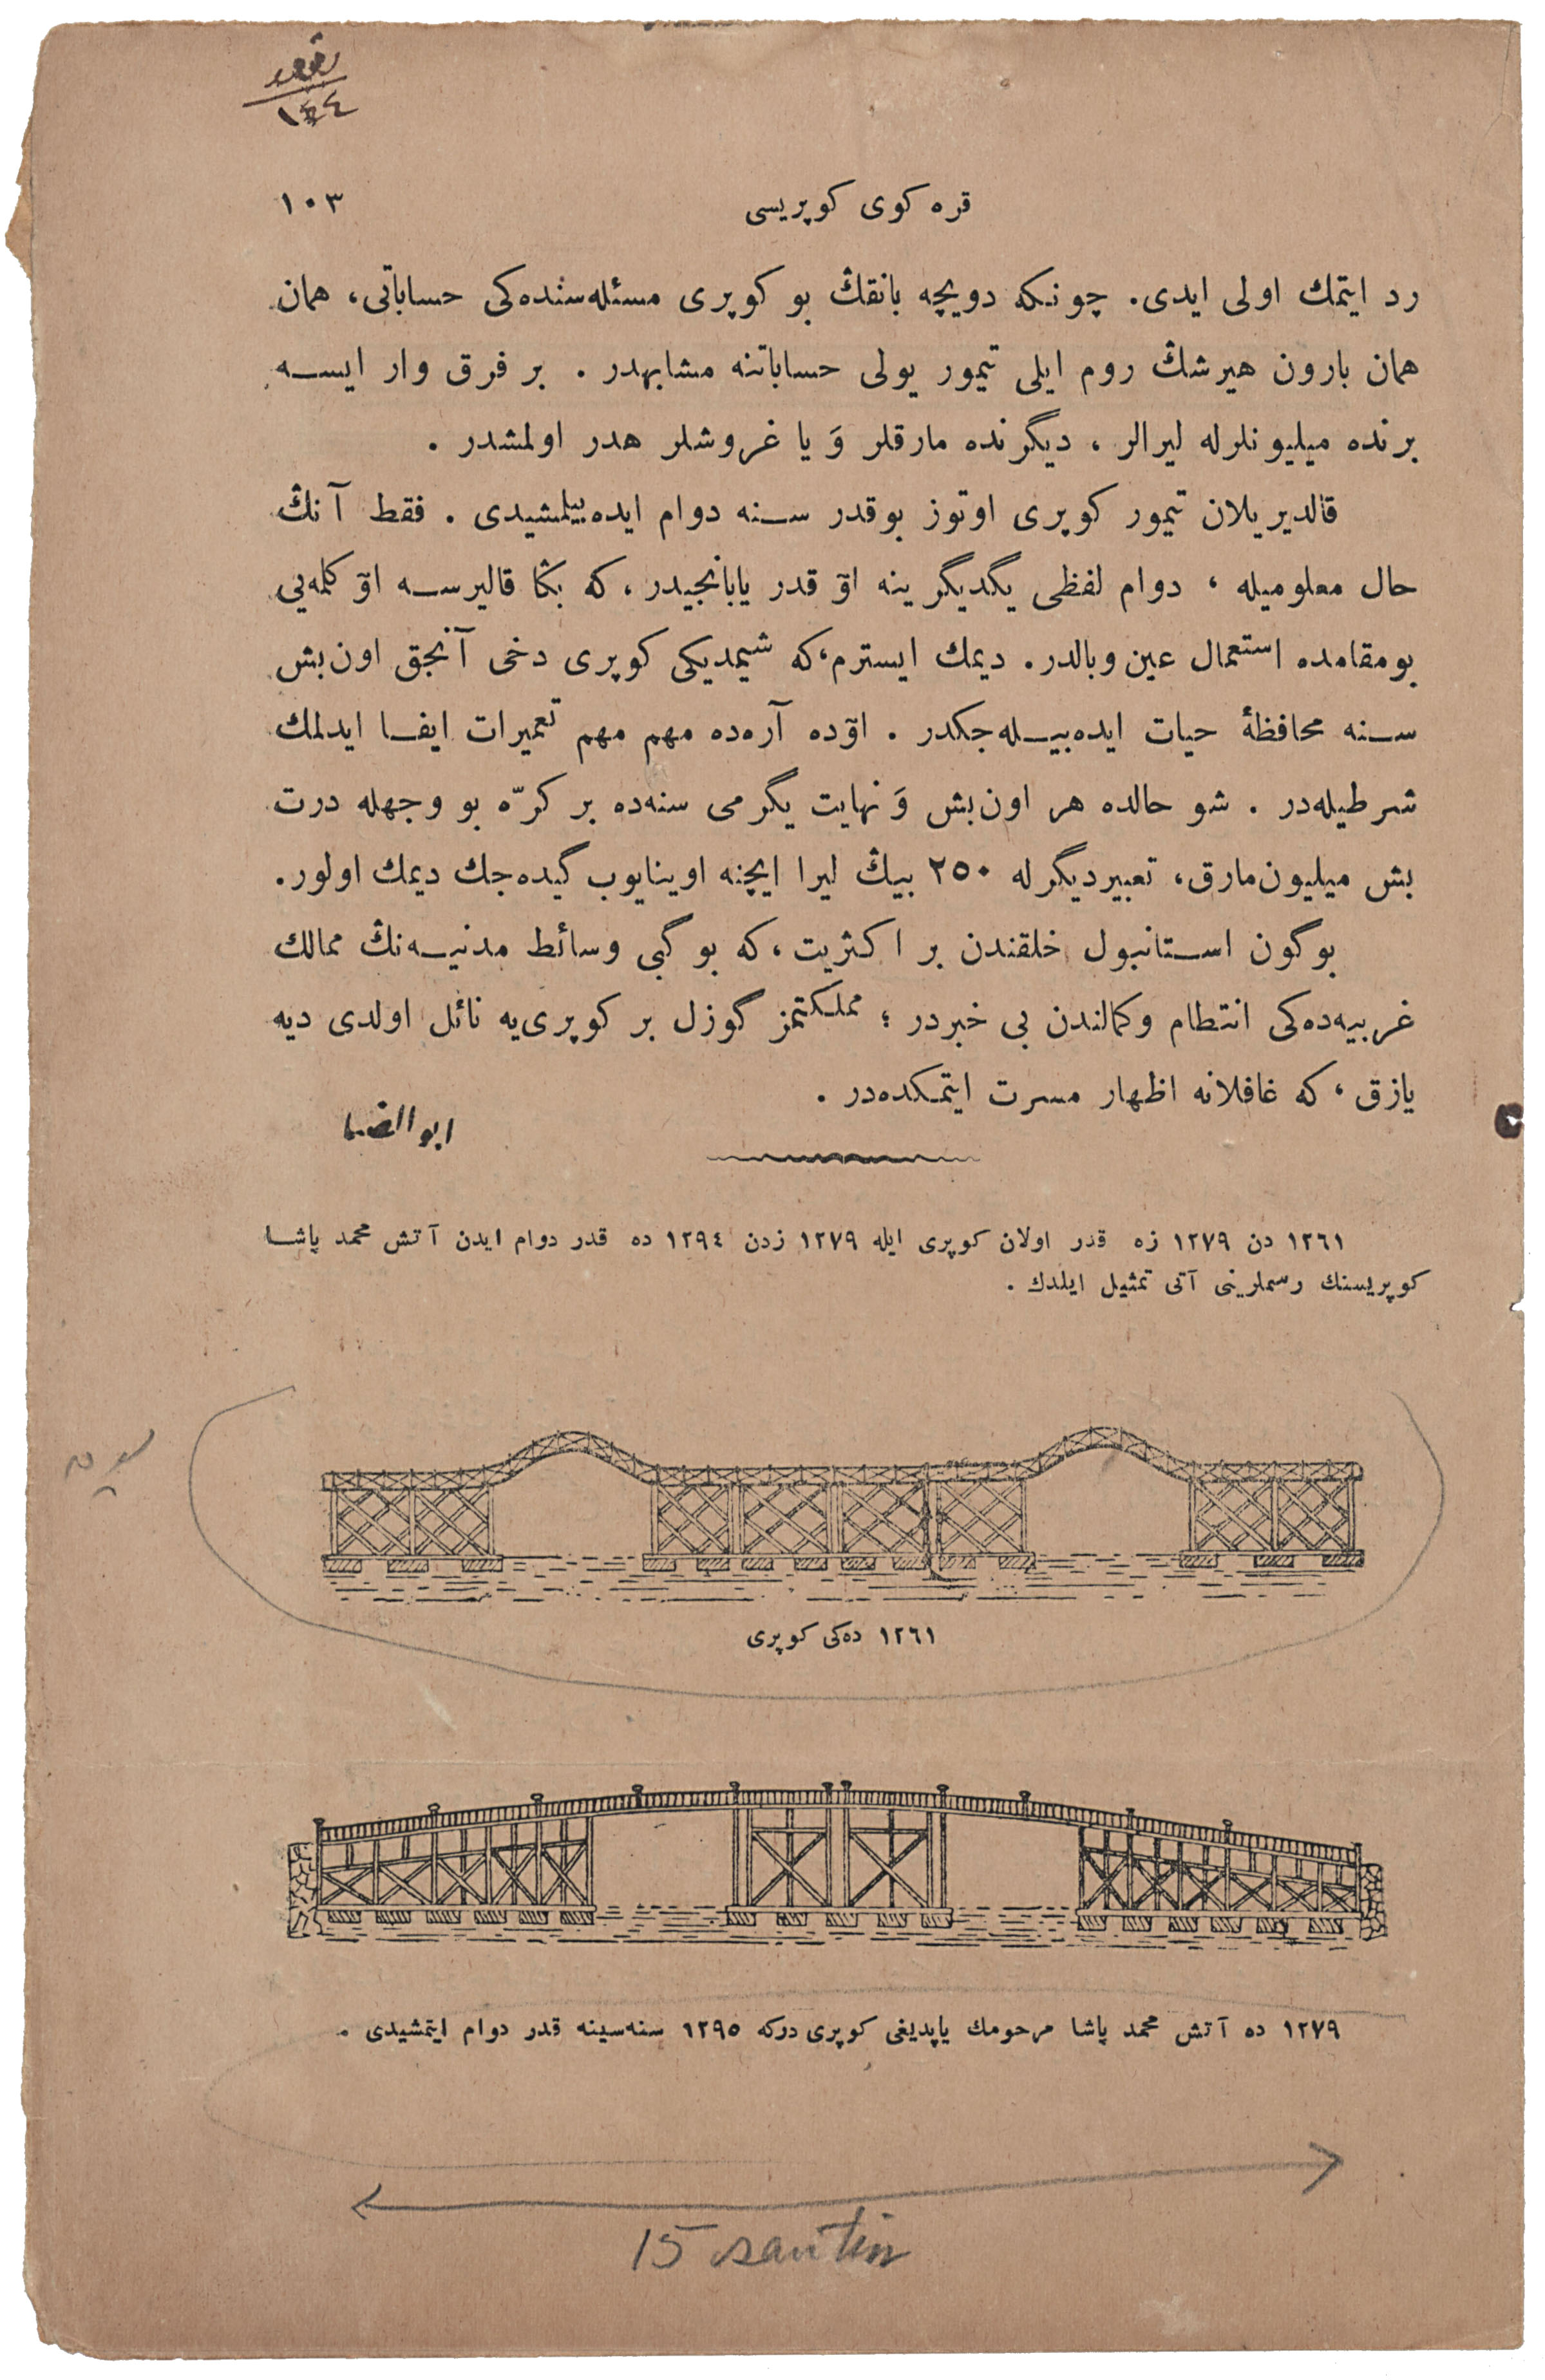 ١٤٤
قره كوی كوپريسی
١٠٣
رد ايتمك اولی ايدی. چونكه دويچه بانقڭ بو كوپری مسئله‌سنده‌كی حساباتی، همان
همان بارون هيرشڭ روم ايلی تيمور يولی حساباتنه مشابهدر . بر فرق وار ايسه
برنده ميليونلرله ليرالر ، ديگرنده مارقلر وَ يا غروشلر هدر اولمشدر .
قالديريلان تيمور كوپری اوتوز بوقدر سنه دوام ايده‌بيلمشيدی . فقط آنڭ
حال معلوميله ، دوام لفظی يگديگرينه اوٓ قدر يابانجيدر ، كه بڭا قاليرسه اوٓ كلمه‌يی
بومقامده استعمال عين وبالدر. ديمك ايسترم، كه شيمديكی كوپری دخی آنجق اون‌بش
سنه محافظهٔ حيات ايده‌بيله‌جكدر . اوٓده آره‌ده مهم مهم تعميرات ايفا ايدلمك
شرطيله‌در . شو حالده هر اون‌بش وَ نهايت يگرمی سنه‌ده بر كرّه بو وجهله درت
بش ميليون مارق، تعبيرديگرله ٢٥٠ بيڭ ليرا ايچنه اوينايوب گيده‌جك ديمك اولور.
بوگون استانبول خلقندن بر اكثريت، كه بو گبی وسائط مدنيه‌نڭ ممالك
غربيه‌ده‌كی انتظام وكمالندن بی خبردر ؛ مملكتمز گوزل بر كوپری‌يه نائل اولدی ديه
يازق ، كه غافلانه اظهار مسرت ايتمكده‌در .
ابوالضيا
١٢٦١ دن ١٢٧٩ زه قدر اولان كوپری ايله ١٢٧٩ زدن ١٢٩٤ ده قدر دوام ايدن آتش محمد پاشا
كوپريسنك رسملرينی آتی تمثيل ايلدك .
١٢٦١ ده‌كی كوپری
١٢٧٩ ده آتش محمد پاشا مرحومك ياپديغی كوپری دركه ١٢٩٥ سنه‌سينه قدر دوام ايتمشيدی .
15 santim